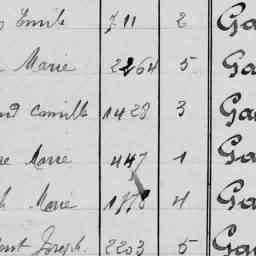 Emile 711 2 Ga
Marie 2264 5 Ga
Camille 1423 3 Ga
Marie 447 1 Ga
Marie 1778 4 Ga
Joseph 2203 5 Ga